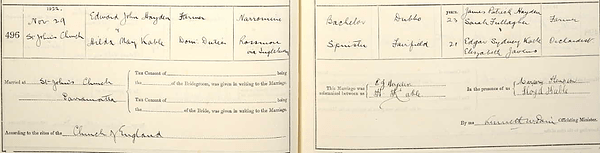 1932.
Nov. 29 Edward John Hayden Farmer Narromine
496 St John's Church
Hilda May Kable Dom. Duties Rossmore via Ingleburn
Married at St John's Church
Parramatta
The Consent of being
the of the Bridegroom, was given in writing to the Marriage.
The Consent of being
the of the Bride, was given in writing to the Marriage.
According to the rites of the Church of England
Bachelor Dubbo years 23 James Patrick Hayden Farmer
Sarah Fullagher
Spinster Fairfield 21 Edgar Sydney Kable Orchardist
Elizabeth Javens
This Marriage was solemnized between us
E J Hayden
H M Kable
In the presence of us
Floyd Kable
By me Officiating Minister.